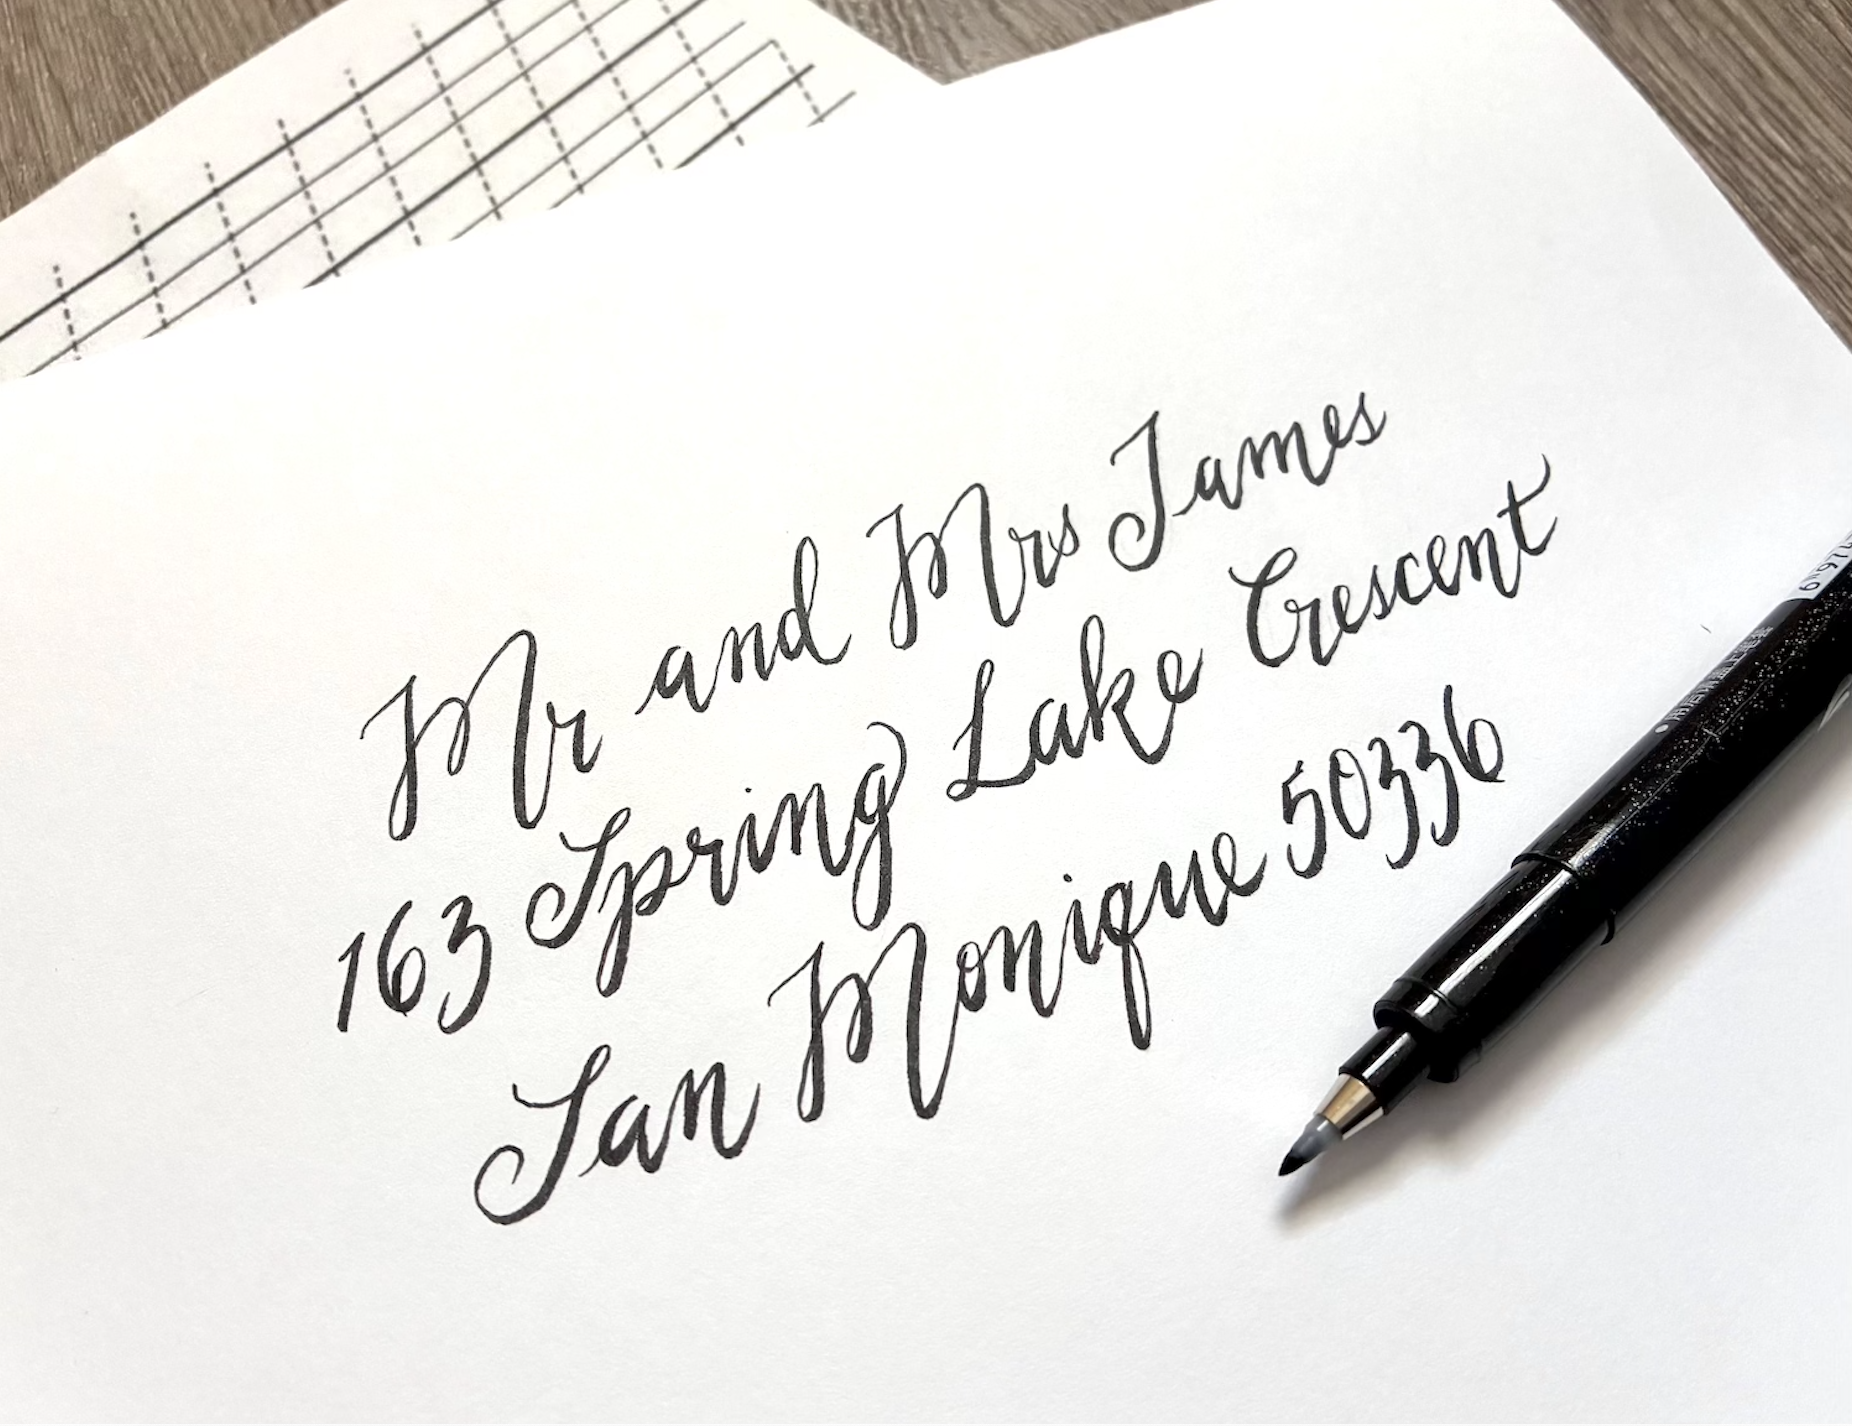 Mr and Mrs James
163 Spring Lake Crescent
San Monique 50336